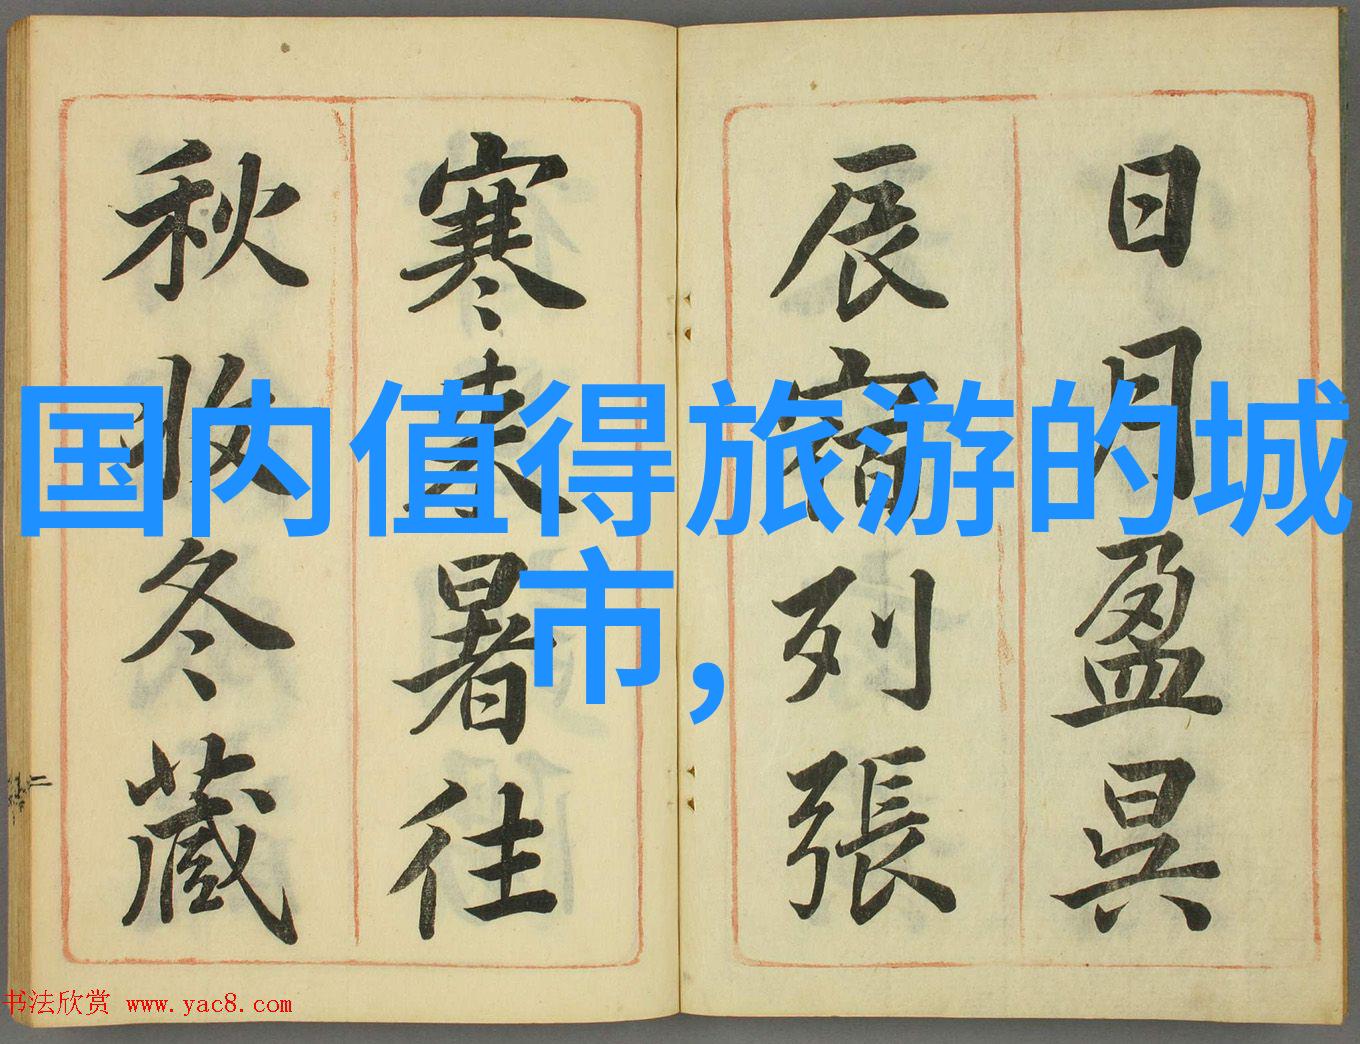 日月盈昃
辰宿列張
寒来暑往
秋收冬藏
国内值得旅游的城
市,
书法欣赏 www.yac8.com